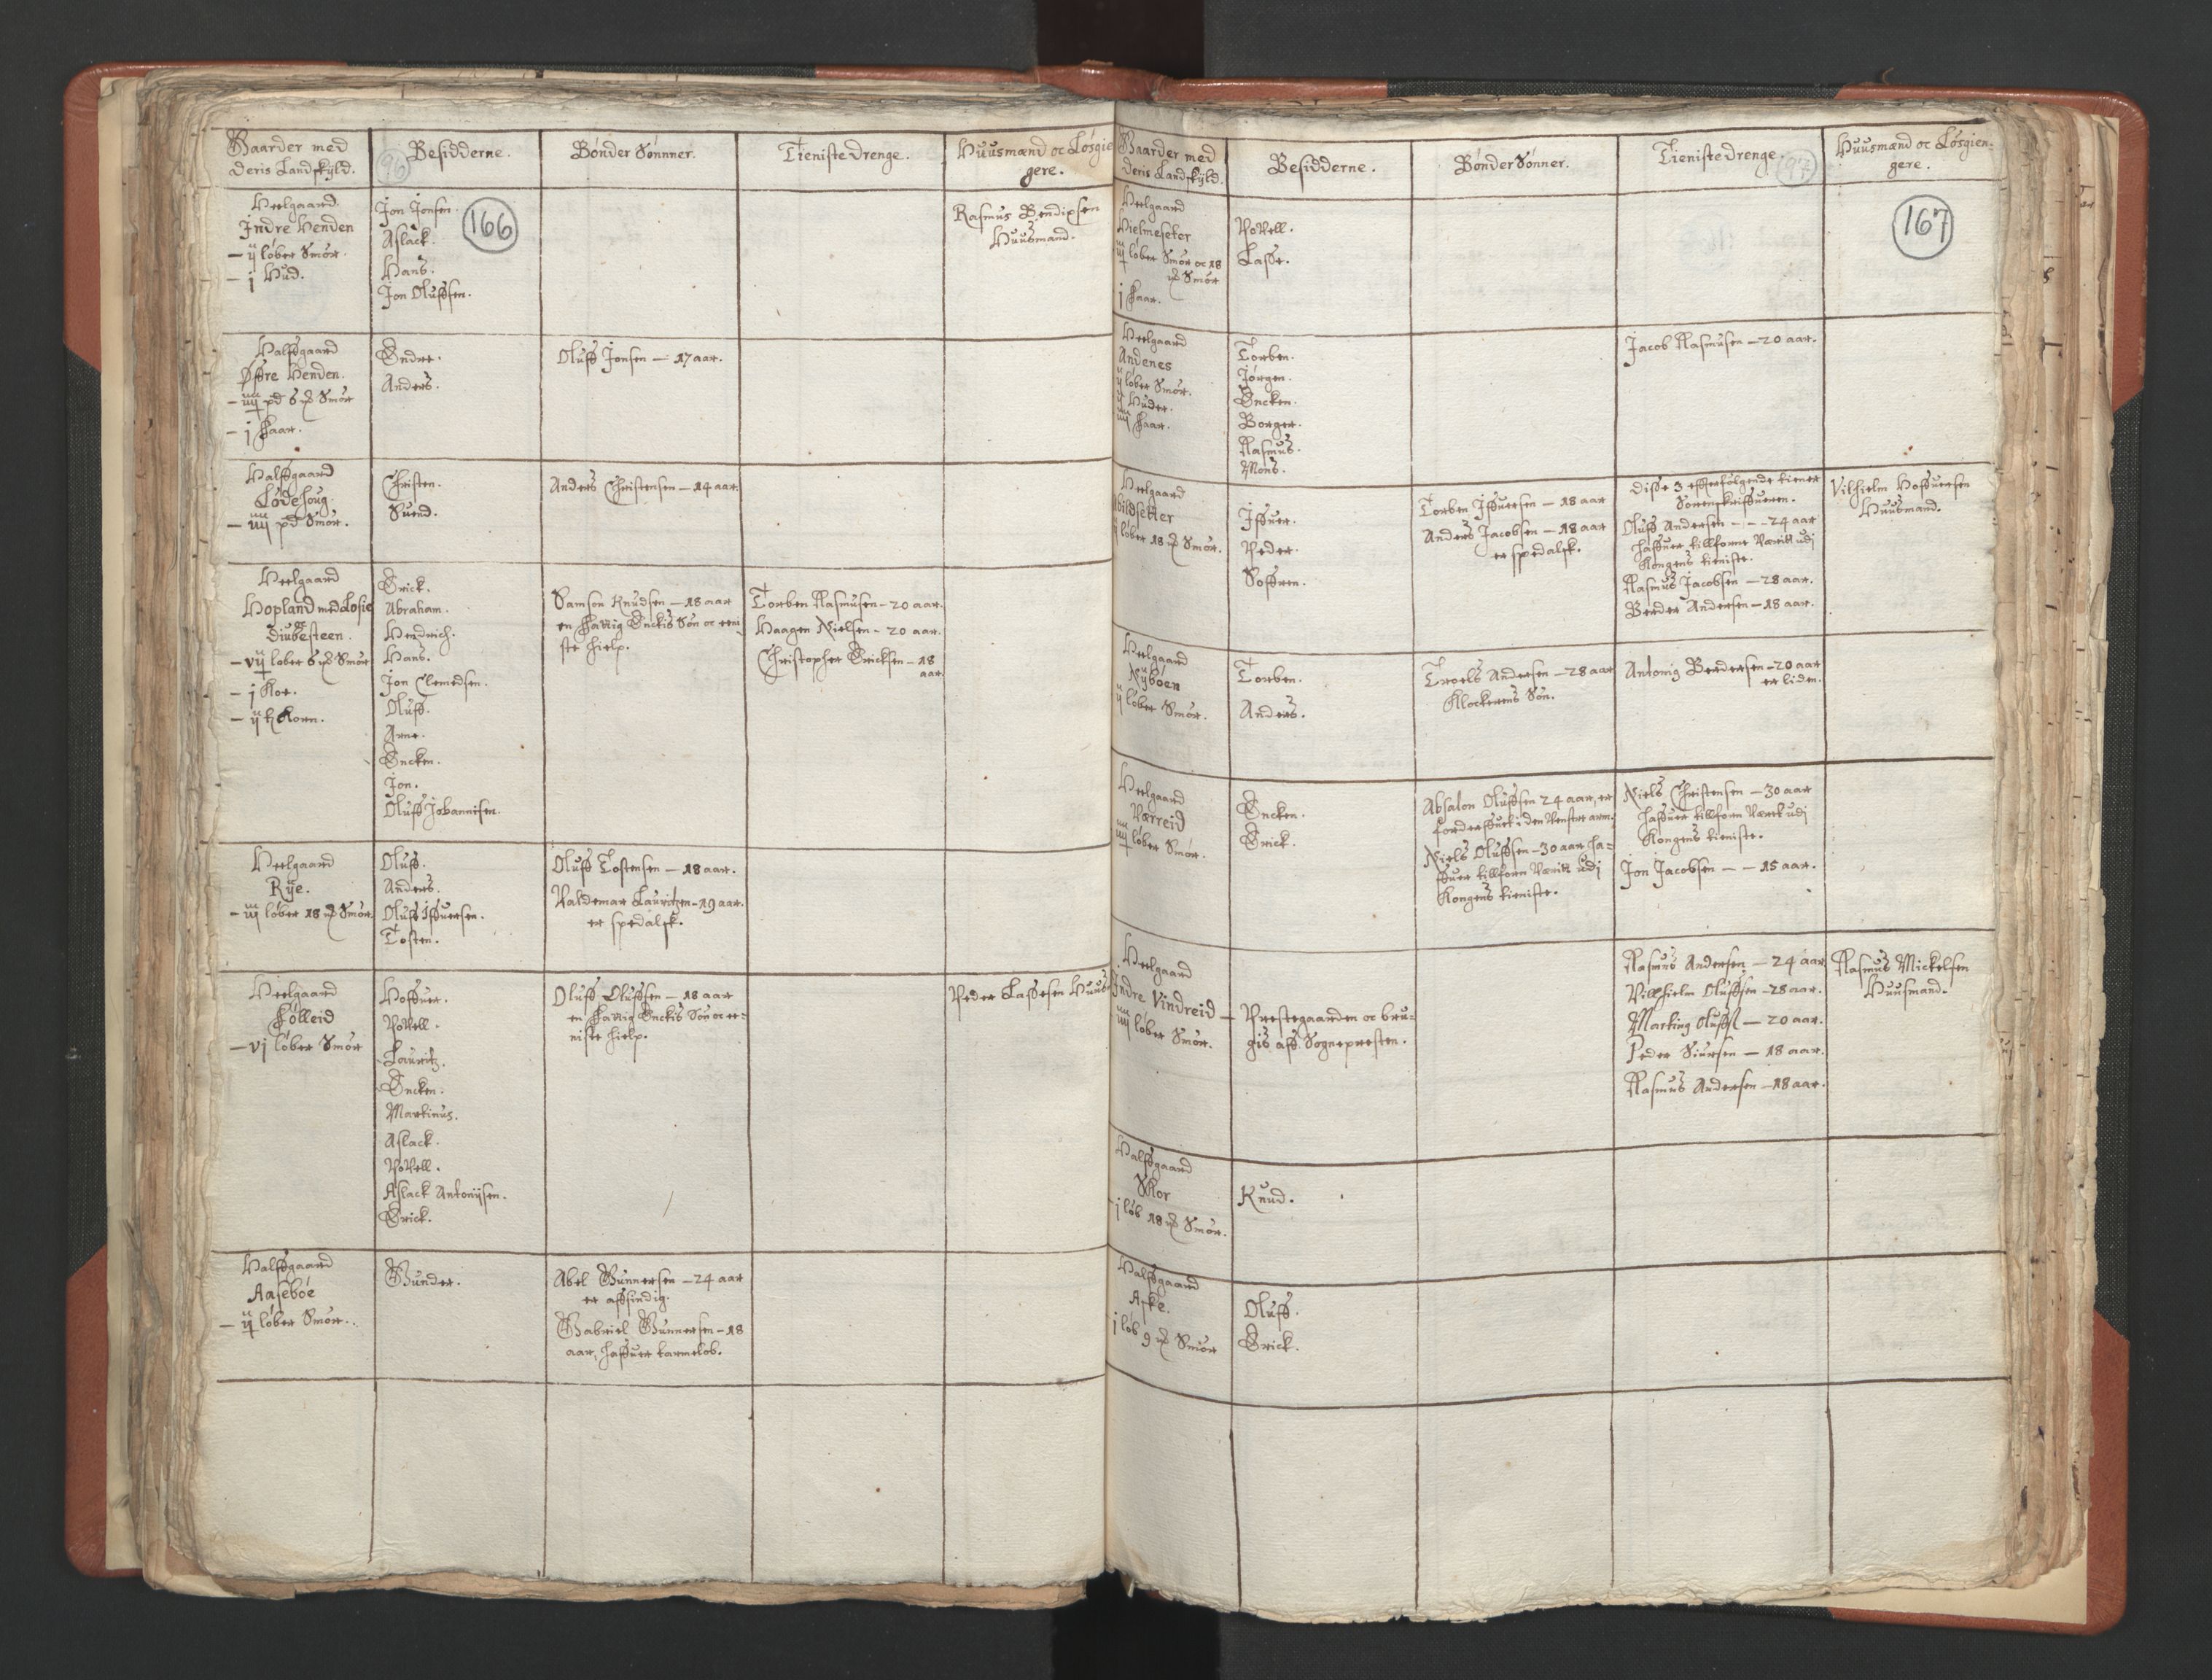 Gaarder med
deris Landskÿld.
Besidderne.
Bønder Sønnner.
Tieniste drenge.
Huusmænd oc Løsgie
gere.
96
166
Heelgaard
Indre Henden
– ij løber Smør.
– j Hud.
Jon Jonsen.
Aslack.
Hans.
Jon Oluffsen.
Rasmus Bendixsen
Huusmand.
Halffgaard
Øffre Henden.
– iiij pd 6 mk Smør
– j faar.
Endre.
Anders.
Oluff Jonsen – 17 aar.
Halffgaard
Lødehoug.
– iiij pd Smør.
Christen.
Suend.
Anders Christensen – 14 aar.
Heelgaard
Hopland med Losie
oc
Diubesteen.
– vij løber 6 mk Smør
– j Koe.
– ij h Korn.
Erick.
Abraham.
Hendrich.
Hans.
Jon Clemedsen.
Oluff.
Arne.
Encken.
Jon.
Oluff Johannisen.
Samson Knudsen – 18 aar
en fattig Enckis Søn oc eeni
ste hielp.
Torben Rasmusen – 20 aar.
Haagen Nielsen – 20 aar.
Christopher Ericksen – 18
aar.
Heelgaard
Rÿe.
– iij løber 18 mk Smør.
Oluff.
Anders.
Oluff Iffuersen.
Tosten.
Oluff Tostensen – 18 aar.
Valdemar Lauritzen – 19 aar.
er spedalsk.
Heelgaard
Følleid
– vj løber Smør
Hoffuer.
Povell.
Lauritz.
Encken.
Martinus.
Aslack.
Povell.
Aslack Antonijsen.
Erick.
Oluff Oluffsen – 18 aar
en fattig Enckis Søn oc ee-
niste hielp.
Peder Lassesen Huus
Halffgaard
Aasebøe
– ij løber Smør.
Gunder.
Abel Gunnersen – 24 aar
er affsindig.
Gabriel Gunnersen – 18
aar, haffuer tarmeløb.
Gaarder med
deris Landskÿld.
Besidderne.
Bønder Sønner.
Tieniste drenge.
Huusmænd oc Løsgien-
gere.
97
167
Heelgaard
Hielmesetor
iij løber Smør oc 18
mk Smør
j faar.
Povell.
Lasse.
Heelgaard
Andenes
ij løber Smør.
ij Huder.
iiij faar.
Torben.
Jørgen.
Encken.
Borger.
Rasmus.
Mons.
Jacob Rasmusen – 20 aar.
Heelgaard
ildsetter
ij løber 18 mk Smør.
Iffuer.
Peder.
Soffren.
Torben Iffuersen – 18 aar
Anders Jacobsen – 18 aar
er spedalsk.
Disse 3 effterfølgende tiener
Sorenskriffueren.
Oluff Andersen – – – 24 aar
haffuer tillforne Væritt udj
Kongens tieniste.
Rasmus Jacobsen – 28 aar.
Berder Andersen – 18 aar.
Vilhielm Hoffuersen
Huusmand.
Heelgaard
Nÿbøen
ij løber Smør.
Torben.
Anders.
Troels Andersen – 28 aar
Klockerens Søn.
Antonig Berdersen – 20 aar
er liden.
Heelgaard
Værreid
iiij løber Smør.
Encken.
Erick.
Absalon Oluffsen 24 aar, er
forderffuet i den Venstre arm.
Niels Oluffsen – 30 aar ha-
ffuer tillforn Væritt udj
Kongens tieniste.
Niels Christensen – 30 aar
haffuer tillforn Værit udj
Kongens tieniste.
Jon Jacobsen – – 15 aar.
Heelgaard
Indre Vindreid –
iiij løber Smør.
Prestegaarden oc bru-
gis aff Sognepresten.
Rasmus Andersen – 24 aar
Villhielm Oluffsen – 28 aar.
Marting Oluffs – 20 aar.
Peder Siursen – 18 aar.
Rasmus Andersen – 18 aar.
Rasmus Mickelsen
Huusmand.
Halffgaard
Skor
j løb 18 mk Smør.
Knud.
Halffgaard
Aske.
j løb 9 mk Smør
Oluff.
Erick.